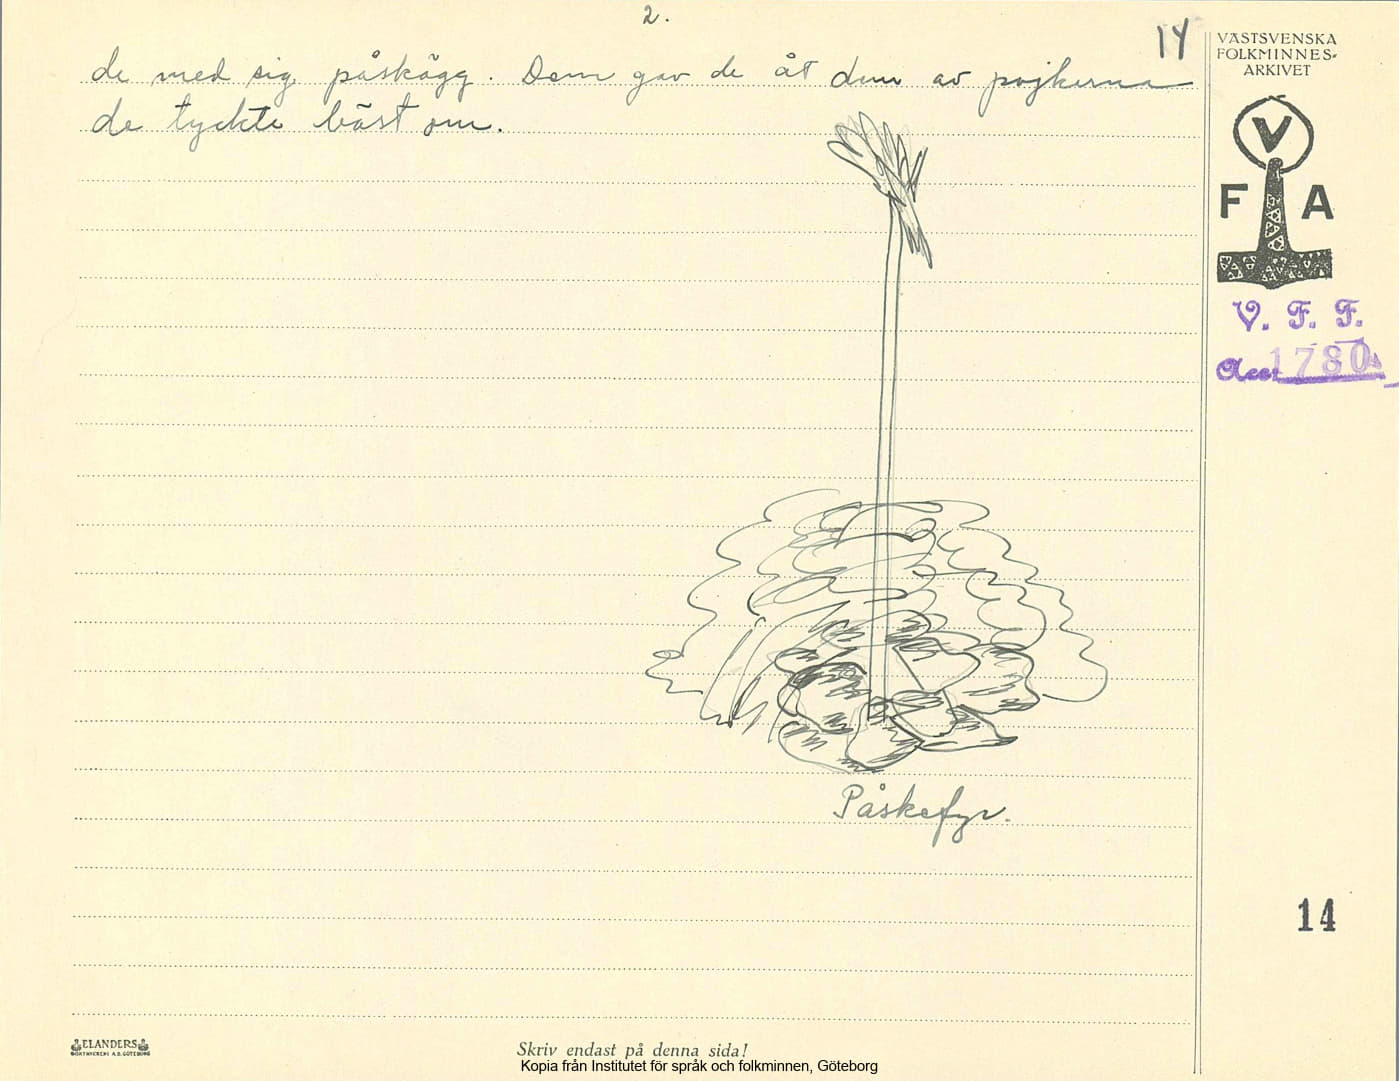 2.
14
VÄSTSVENSKA
FOLKMINNES-
ARKIVET
de med sig påskägg. Dem gav de åt dem av pojkerna
de tyckte bäst om.
V
F A
V. F. F.
Acc. 1780
Påskefyr.
14
ELANDERS
BOKTRYCKERI A.B. GÖTEBORG
Skriv endast på denna sida!
Kopia från Institutet för språk och folkminnen, Göteborg